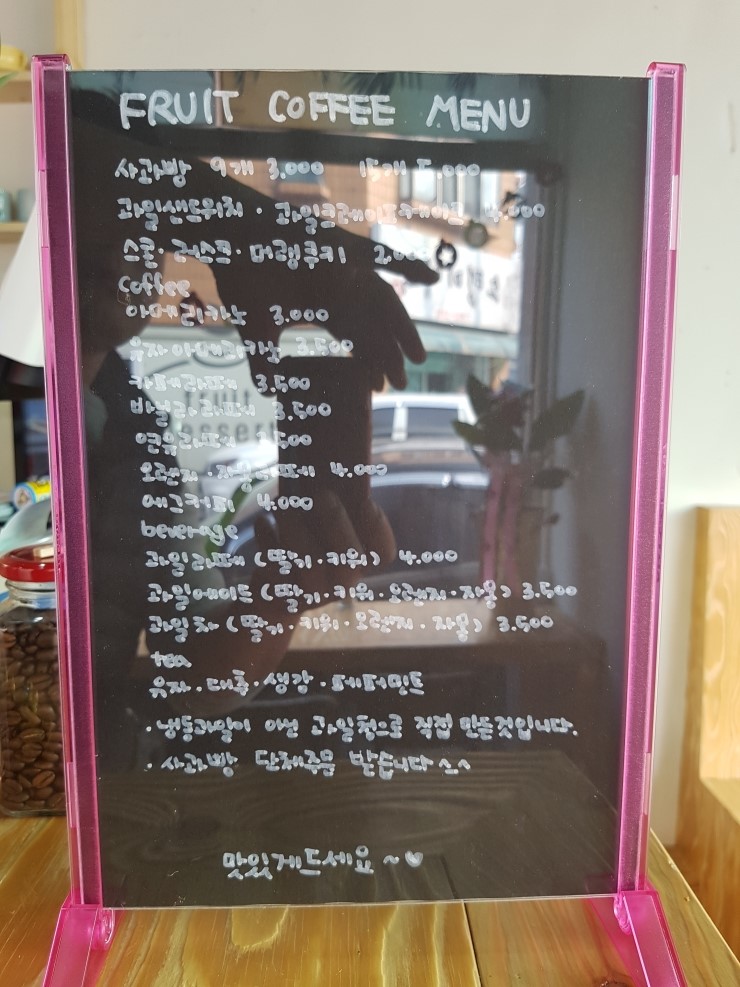 FRUIT COFFEE MENU
사과빵 9개 3.000 15개 5.000
과일샌드위치 · 과일크레이프케이크 4.000
스콘 · 러스크 · 머랭쿠키 2.000
coffee
아메리카노 3.000
유자아메리카노 3.500
카페라떼 3.500
바닐라라떼 3.500
연유라떼 3.500
오렌지 · 자몽라떼 4.000
에그커피 4.000
beverage
과일라떼 (딸기 · 키위) 4.000
과일에이드 (딸기 · 키위 · 오렌지 · 자몽) 3.500
과일차 (딸기 · 키위 · 오렌지 · 자몽) 3.500
tea
유자 · 대추 · 생강 · 페퍼민트
· 냉동과일이 아닌 과일청으로 직접 만든것입니다.
· 사과빵 단체주문 받습니다 ^^
맛있게드세요 ~♡